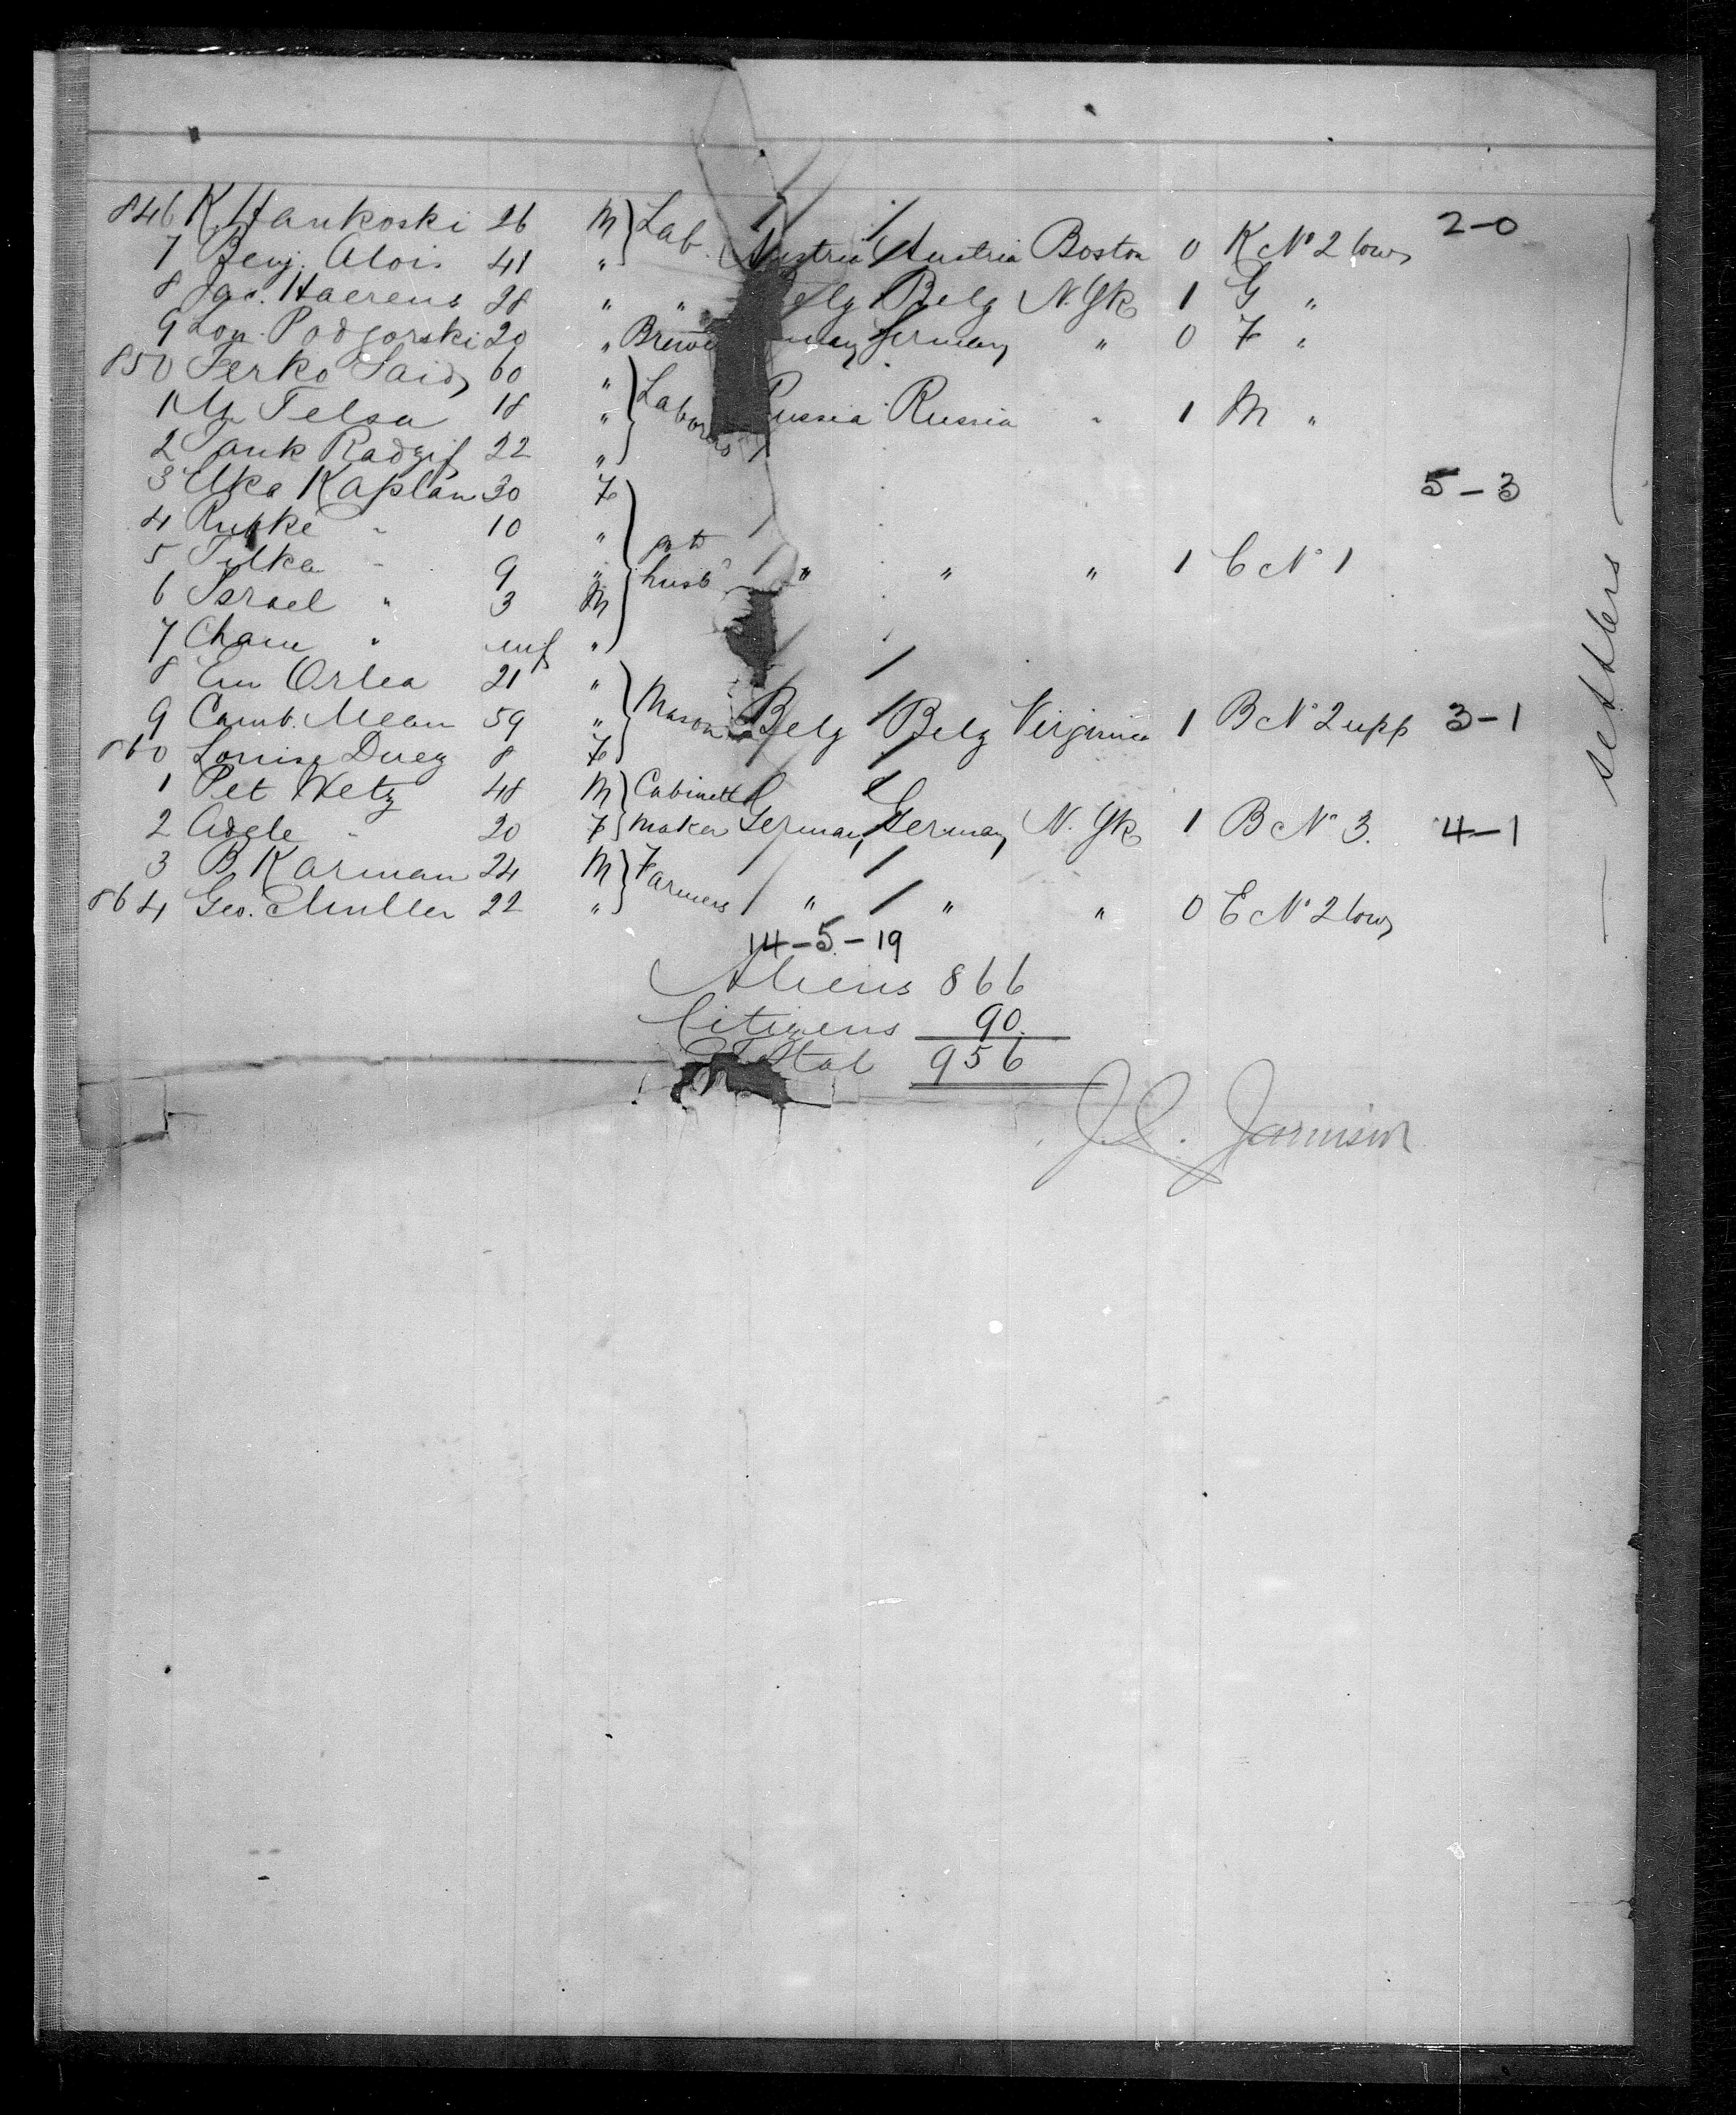 846 K. Hankoski 26 M } Lab. Austria Austria Boston 0 K No 2 low 2-0
7 Benj. Alois 41 "
8 Jac. Haerens 28 " " Belg N.Yk 1 G "
9 Podgorski 20 " Germany " 0 F "
850 60 "
1 Telsa 18 " } Laborers Russia Russia " 1 M "
2 22 "
3 Elka Kaplan 30 F 5-3
4 " 10 "
5 " 9 " } husb " " " 1 C No 1
6 Israel " 3 M
7 " inf "
8 Em Orlea 21 "
9 Camb. 59 " } Mason Belg Belg Virginia 1 B No 2 upp 3-1
860 Louise 8 F
1 Pet Wetz 48 M } Cabinett
2 Adele " 20 F } maker Germany Germany N.Yk 1 B No 3. 4-1
3 B. Karman 24 M } Farmers
864 Geo. Muller 22 " " " " 0 E No 2 low
14-5-19
Aliens 866
Citizens 90
Total 956
— settlers —